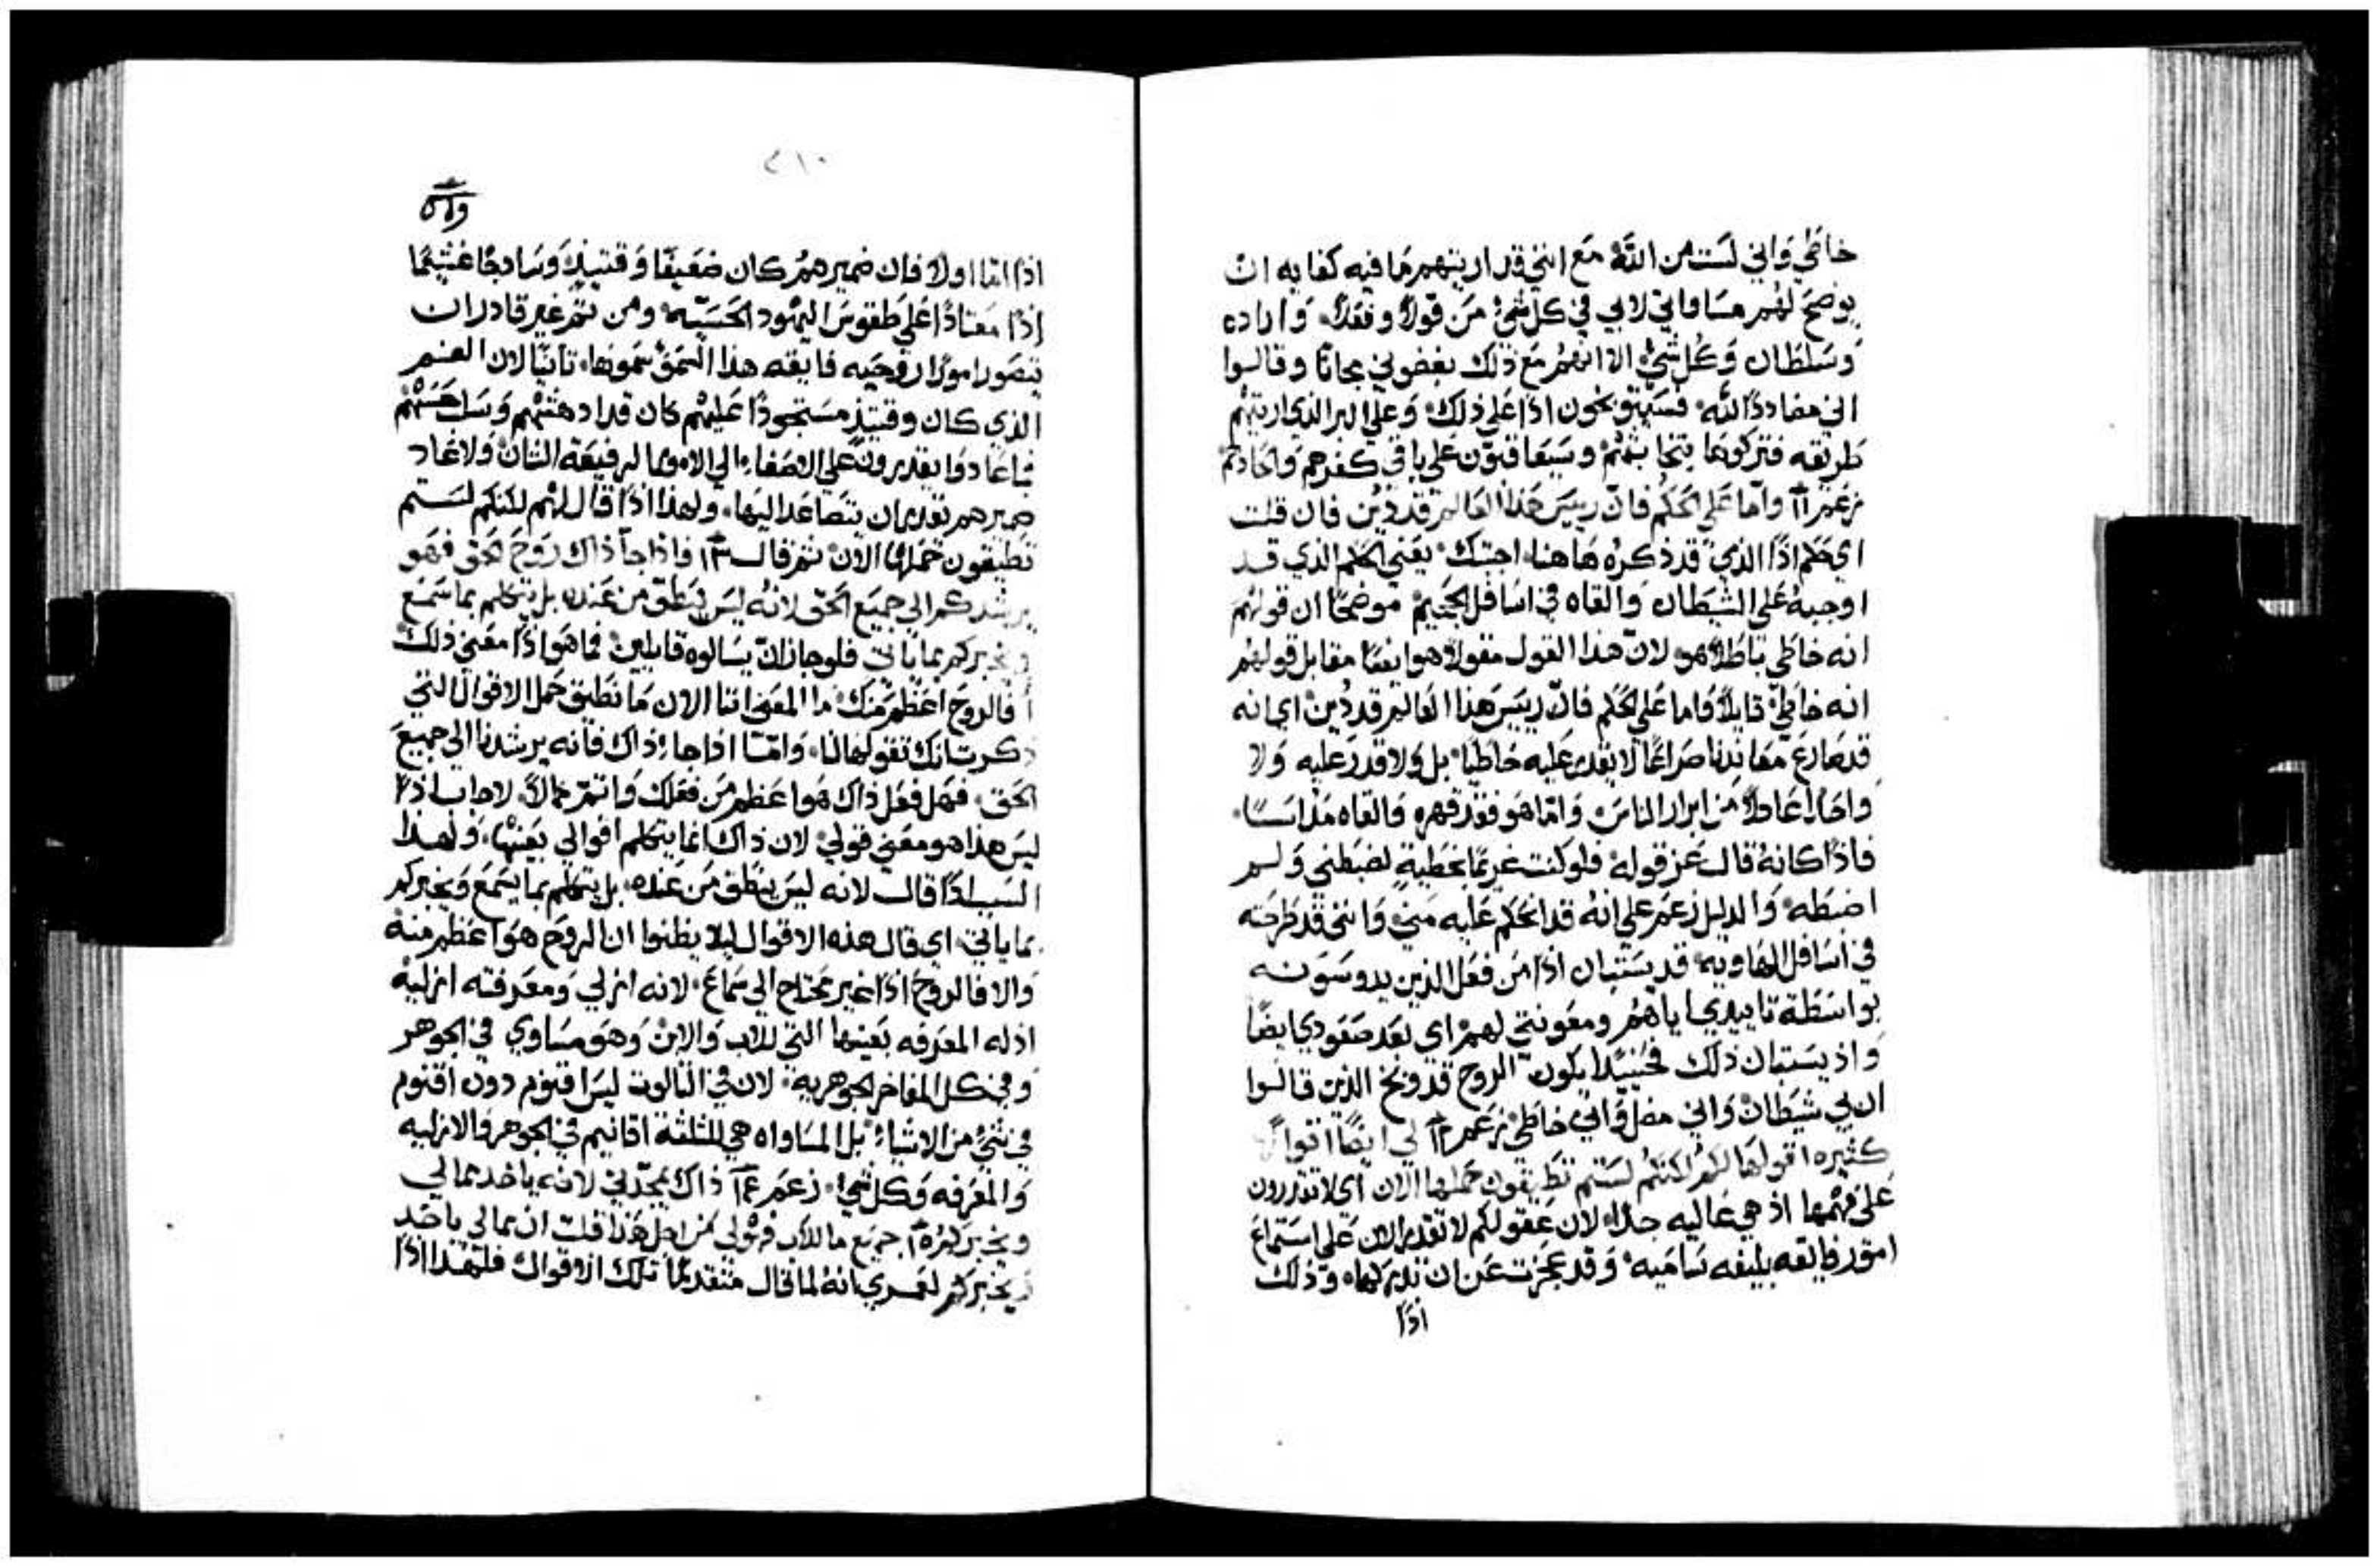 خاطي واني لست من الله مع انني قد اريتهم ما فيه كفايه ان
يوضح لهم مساواتي لابي في كل شيء من قولاً وفعلاً واراده
وسلطان وكل شيء الا انهم مع ذلك بغضوني مجانًا وقالوا
اني مضاددًا لله فسيتوبخون اذًا على ذلك وعلى البر الذي اريتهم
طريقه فتركوها وسيعاقبون على باقي كفرهم والحادهم
زعم ١١ واما على الحكم فان رييس هذا العالم قد دين فان قلت
اي حكم اذًا الذي قد ذكره هاهنا اجبتك يعني الحكم الذي قد
اوجبه على الشيطان والقاه في اسافل الجحيم موضحًا ان قولهم
انه خاطي باطلاً هو لان هذا القول مقولاً هو ايضًا مقابل قولهم
انه خاطي قايلاً فاما على الحكم فان رييس هذا العالم قد دين اي انه
قد صارع معاندنا صراعًا لا يقدر عليه خاطيًا بل ولا قدر عليه ولا
واحدًا عادلاً من ابرار الناس واما هو فقد قهره والقاه مداسًا
فاذًا كانه قال عز قوله فلو كنت غريمًا بخطية لضبطني ولم
اضبطه والدليل زعم على انه قد انحكم عليه مني وانني قد طرحته
في اسافل الهاويه قد يستبان اذًا من فعل الذين يدوسونه
بواسطة تاييدي اياهم ومعونتي لهم اي بعد صعودي ايضًا
واذ يستبان ذلك فحينيذًا يكون الروح قد وبخ الذين قالوا
ان بي شيطان واني مضل واني خاطي زعم ١٢ لي ايضًا اقوالاً
كثيره اقولها لكم لكنكم لستم تطيقون حملها الان اي لا تقدرون
على فهمها اذ هي عاليه جدًا لان عقولكم لا تقدر الان على استماع
امور فايقه بليغه ساميه وقد عجزت عن ان تدركها وذلك
اذًا
٢١٠
اذًا اما اولاً فان ضميرهم كان ضعيفًا وقتيذٍ وسادجًا غشيمًا
اذًا معتادًا على طقوس اليهود الحسيه ومن ثم غير قادر ان
يتصور امورًا روحيه فايقه هذا العمق سموها ثانيًا لان الغم
الذي كان وقتيذٍ مستحوذًا عليهم كان قد ادهشهم
ما عادوا يقدرون على الاصغاء الى الامور الرفيعة الشان ولا عاد
ضميرهم يقدر ان يتصاعد اليها ولهذا اذًا قال لهم لكنكم لستم
تطيقون حملها الان ثم قال ١٣ فاذا جآ ذاك روح الحق فهو
يرشدكم الى جميع الحق لانه ليس ينطق من عنده بل يتكلم بما سمع
ويخبركم بما ياتي فلو جاز ان يسالوه قايلين فما هو اذًا معنى ذلك
أفالروح اعظم منك ما المعنى اننا الان ما نطيق حمل الاقوال التي
ذكرت انك تقولها لنا واما اذا جاء ذاك فانه يرشدنا الى جميع
الحق فهل فعل ذاك هو اعظم من فعلك لاجاب اذًا
ليس هذا هو معنى قولي لان ذاك انما يتكلم اقوالي بعينها ولهذا
السبب اذًا قال لانه ليس ينطق من عنده بل يتكلم بما يسمع ويخبركم
بما ياتي اي قال هذه الاقوال ليلا يظنوا ان الروح هو اعظم منه
والا فالروح اذًا غير محتاج الى سماع لانه ازلي ومعرفته ازلية
اذ له المعرفه بعينها التي للاب والابن وهو مساوي في الجوهر
وفي كل المفاخر الجوهريه لان في الثالوث ليس اقنوم دون اقنوم
في شيء من الاشياء بل المساواه هي للثلثة اقانيم في الجوهر والازليه
والمعرفه وكل شيء زعم ١٤ ذاك يمجدني لانه ياخد مما لي
ويخبركم ١٥ جميع ما للاب فهو لي من اجل هذا قلت ان مما لي ياخد
ويخبركم لعمري انه لما قال متقدمًا تلك الاقوال فلهذا اذًا